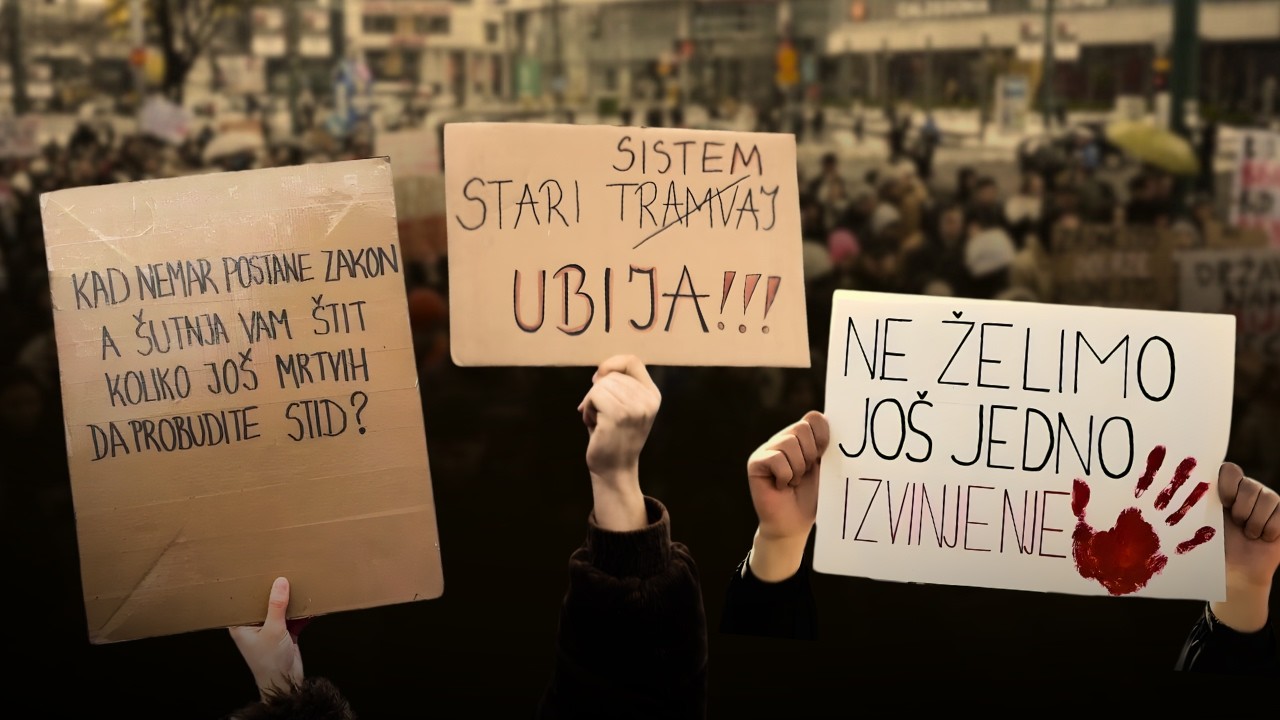 KAD NEMAR POSTANE ZAKON
A ŠUTNJA VAM ŠTIT
KOLIKO JOŠ MRTVIH
DA PROBUDITE STID?
SISTEM
STARI TRAMVAJ
UBIJA!!!
NE ŽELIMO
JOŠ JEDNO
IZVINJENJE